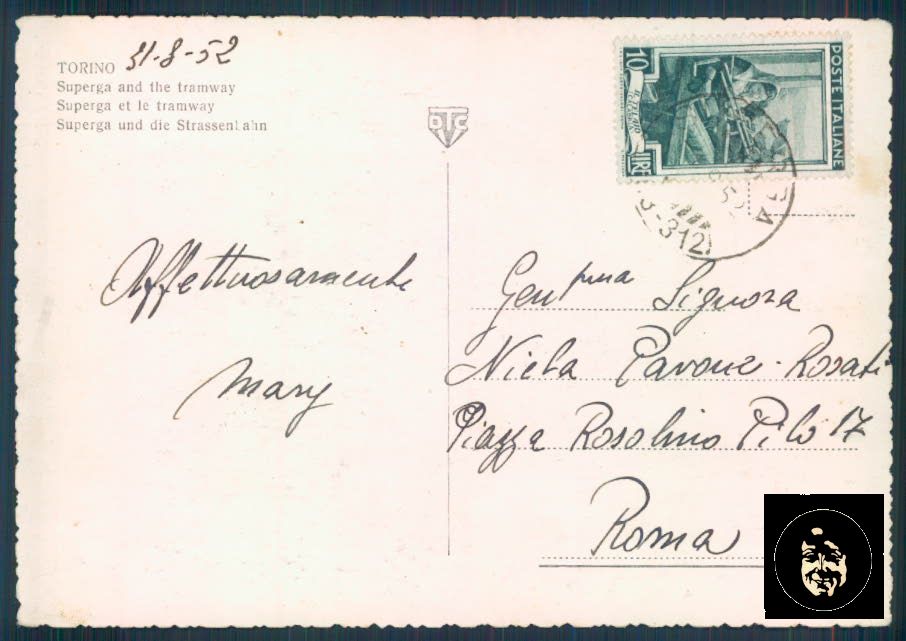 TORINO 31-8-52
Superga and the tramway
Superga et le tramway
Superga und die Strassenbahn
DTC
POSTE ITALIANE
10
LIRE
IL TELAIO
312
Affettuosamente
Mary
Gen.ma Signora
Niela Pavone-Rosati
Piazza Rosolino Pilo 17
Roma